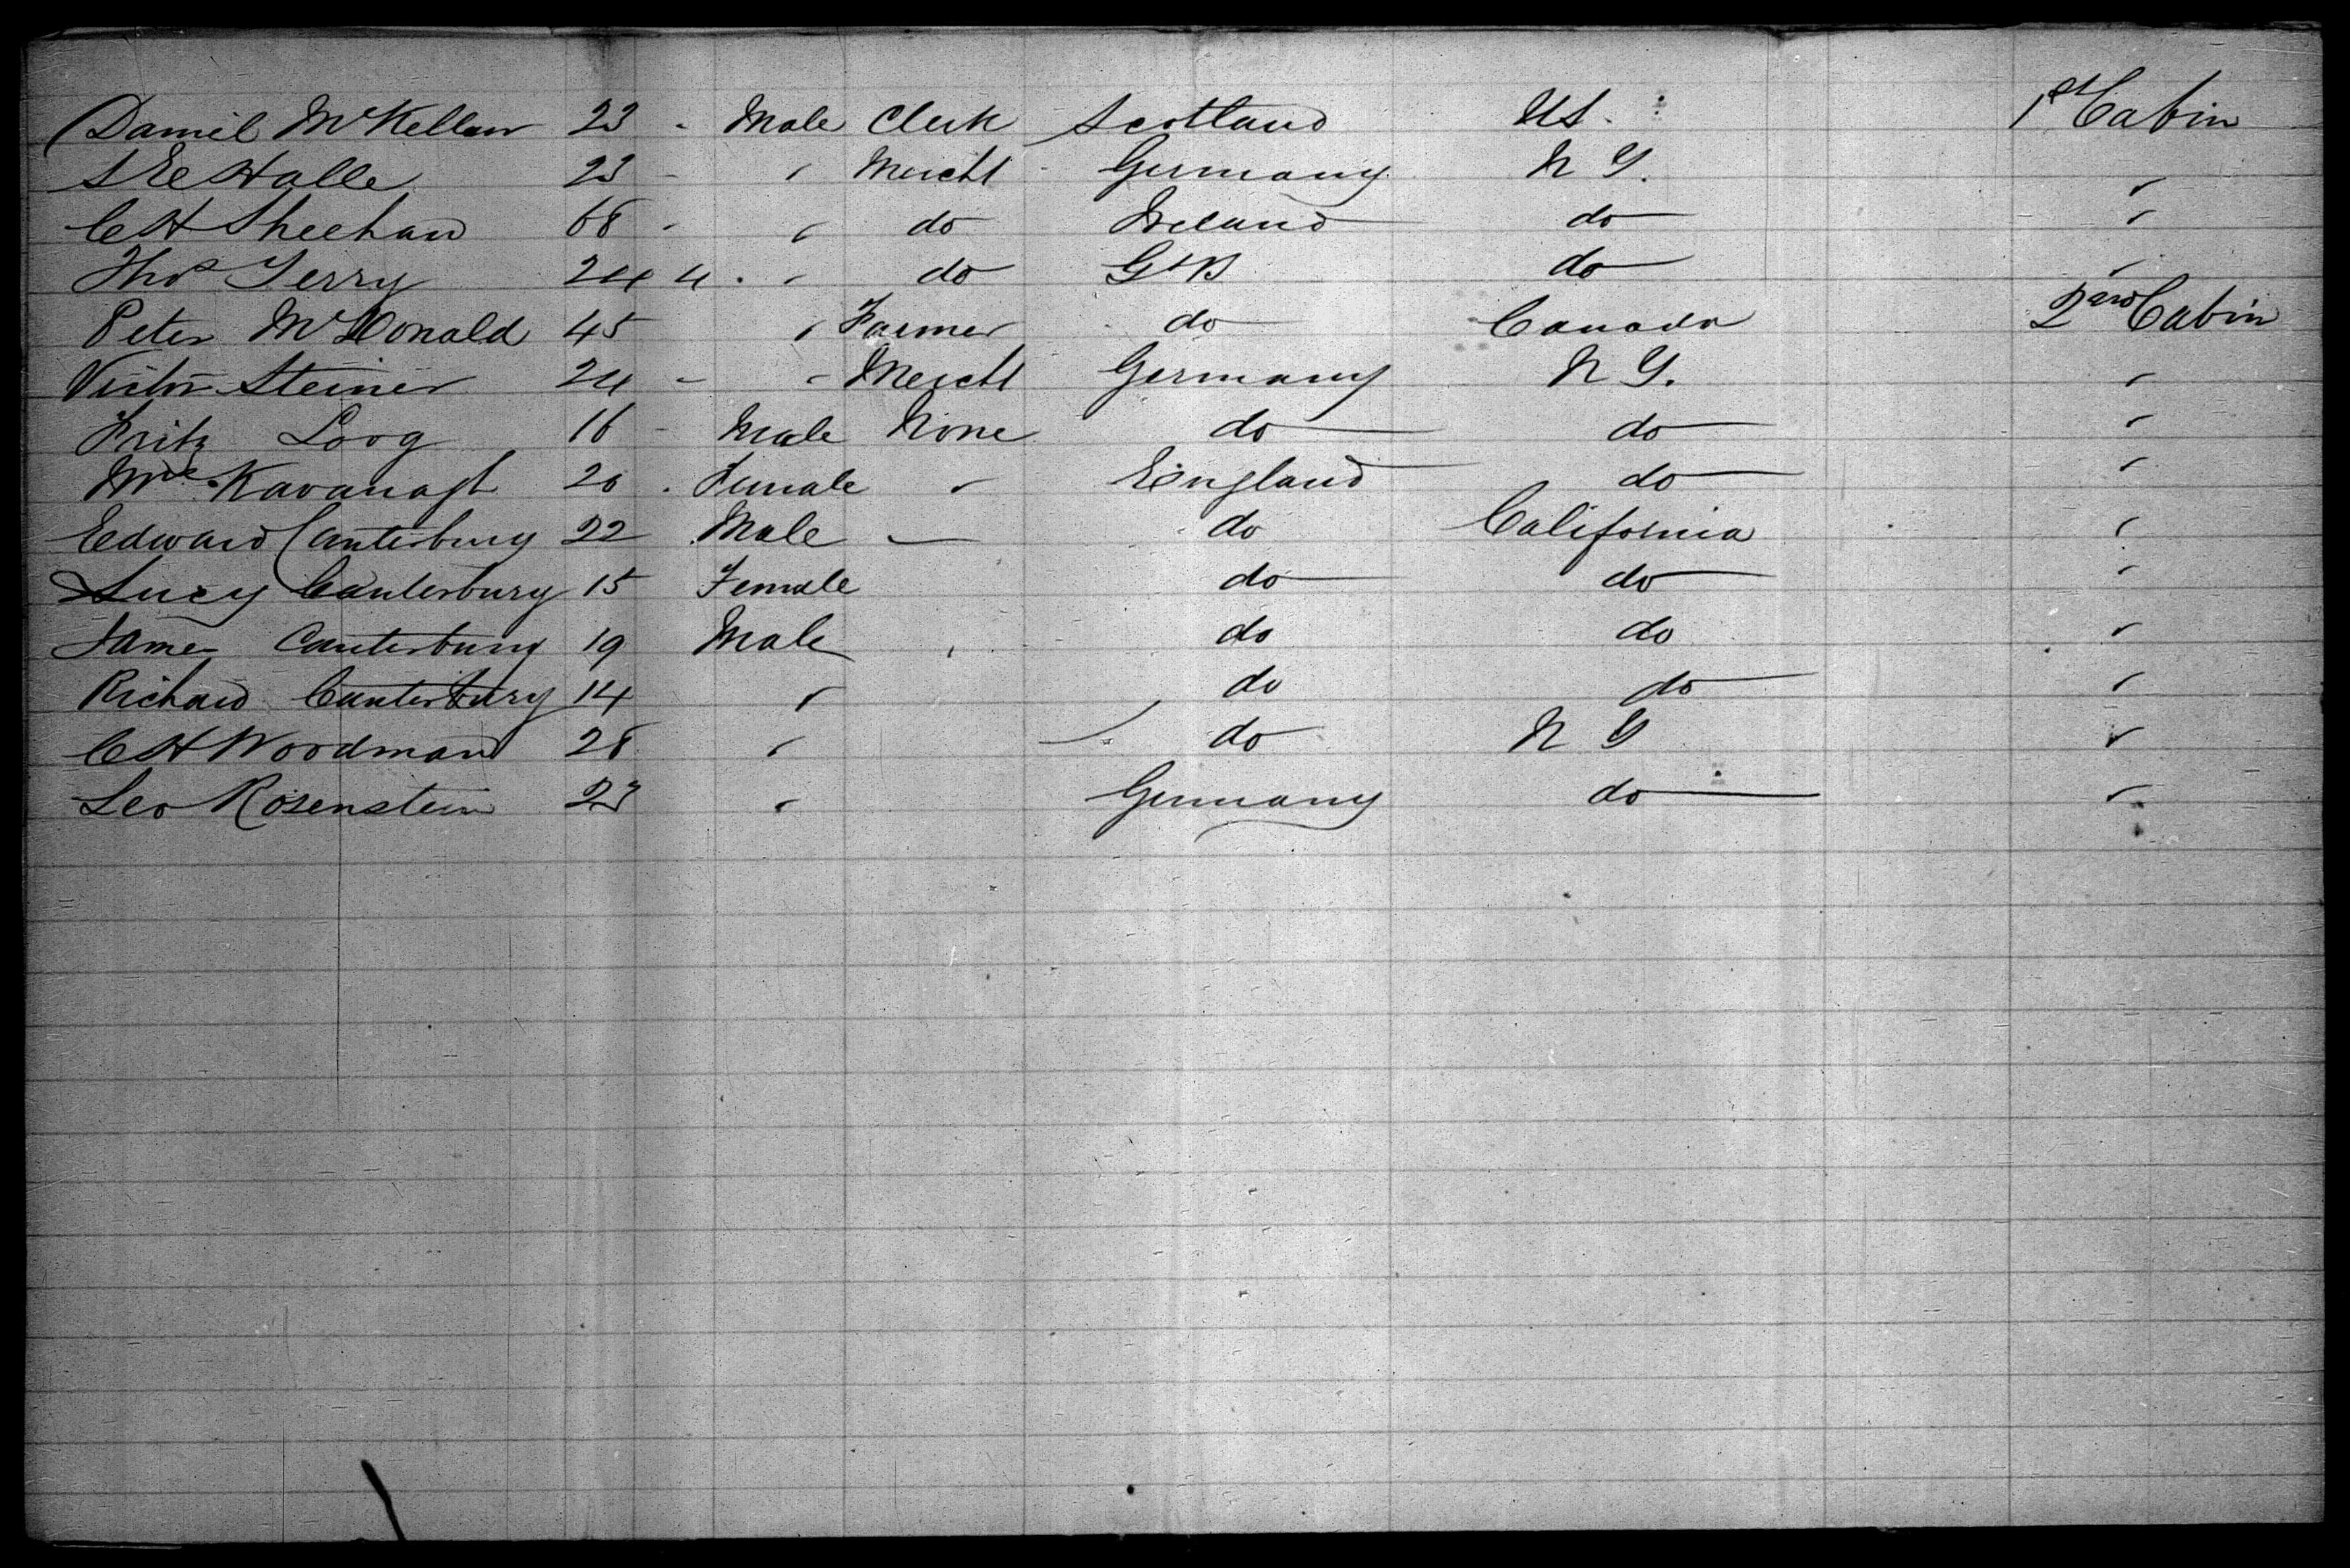 Daniel McKellar 23 - Male Clerk Scotland US. 1st Cabin
S E Halle 23 - " Mercht Germany N Y. "
C H Sheehan 68 - " do Ireland do "
Thos Terry 24 4 . " do Gt B do "
Peter McDonald 45 " Farmer do Canada 2nd Cabin
Victor Steiner 24 - " Mercht Germany N Y. "
Fritz Loog 16 - Male None do do "
Kavanagh 20 . Female " England do "
Edward Canterbury 22 Male — do California "
Lucy Canterbury 15 Female do do "
James Canterbury 19 Male " do do "
Richard Canterbury 14 " do do "
C H Woodman 28 " do N Y "
Leo Rosenstein 23 " Germany do "